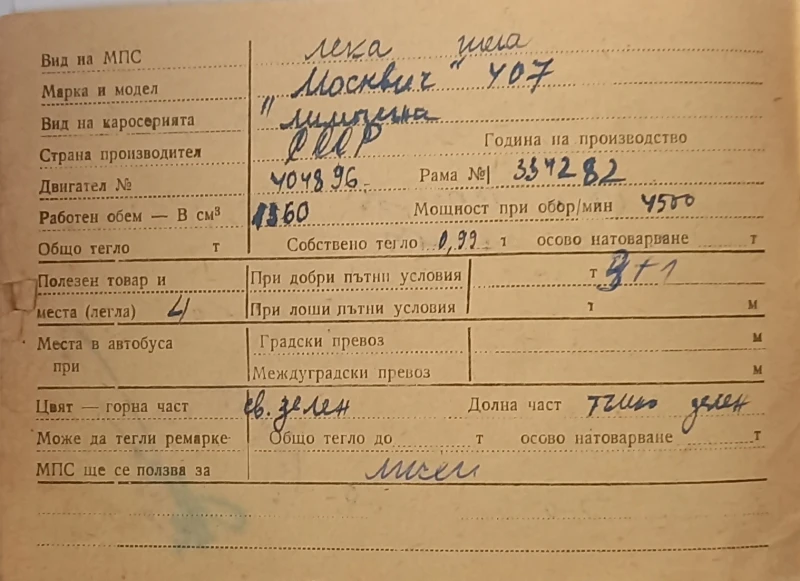 Вид на МПС лека кола
Марка и модел "Москвич" 407
Вид на каросерията "лимузина
Страна производител СССР Година на производство
Двигател № 404896 Рама № 334282
Работен обем — В см³ 1360 Мощност при обор/мин 4500
Общо тегло т Собствено тегло 0,99 т осово натоварване т
Полезен товар и При добри пътни условия т 3+1
места (легла) 4 При лоши пътни условия т м
Места в автобуса Градски превоз м
при Междуградски превоз м
Цвят — горна част св. зелен Долна част тъмно зелен
Може да тегли ремарке Общо тегло до т осово натоварване т
МПС ще се ползва за